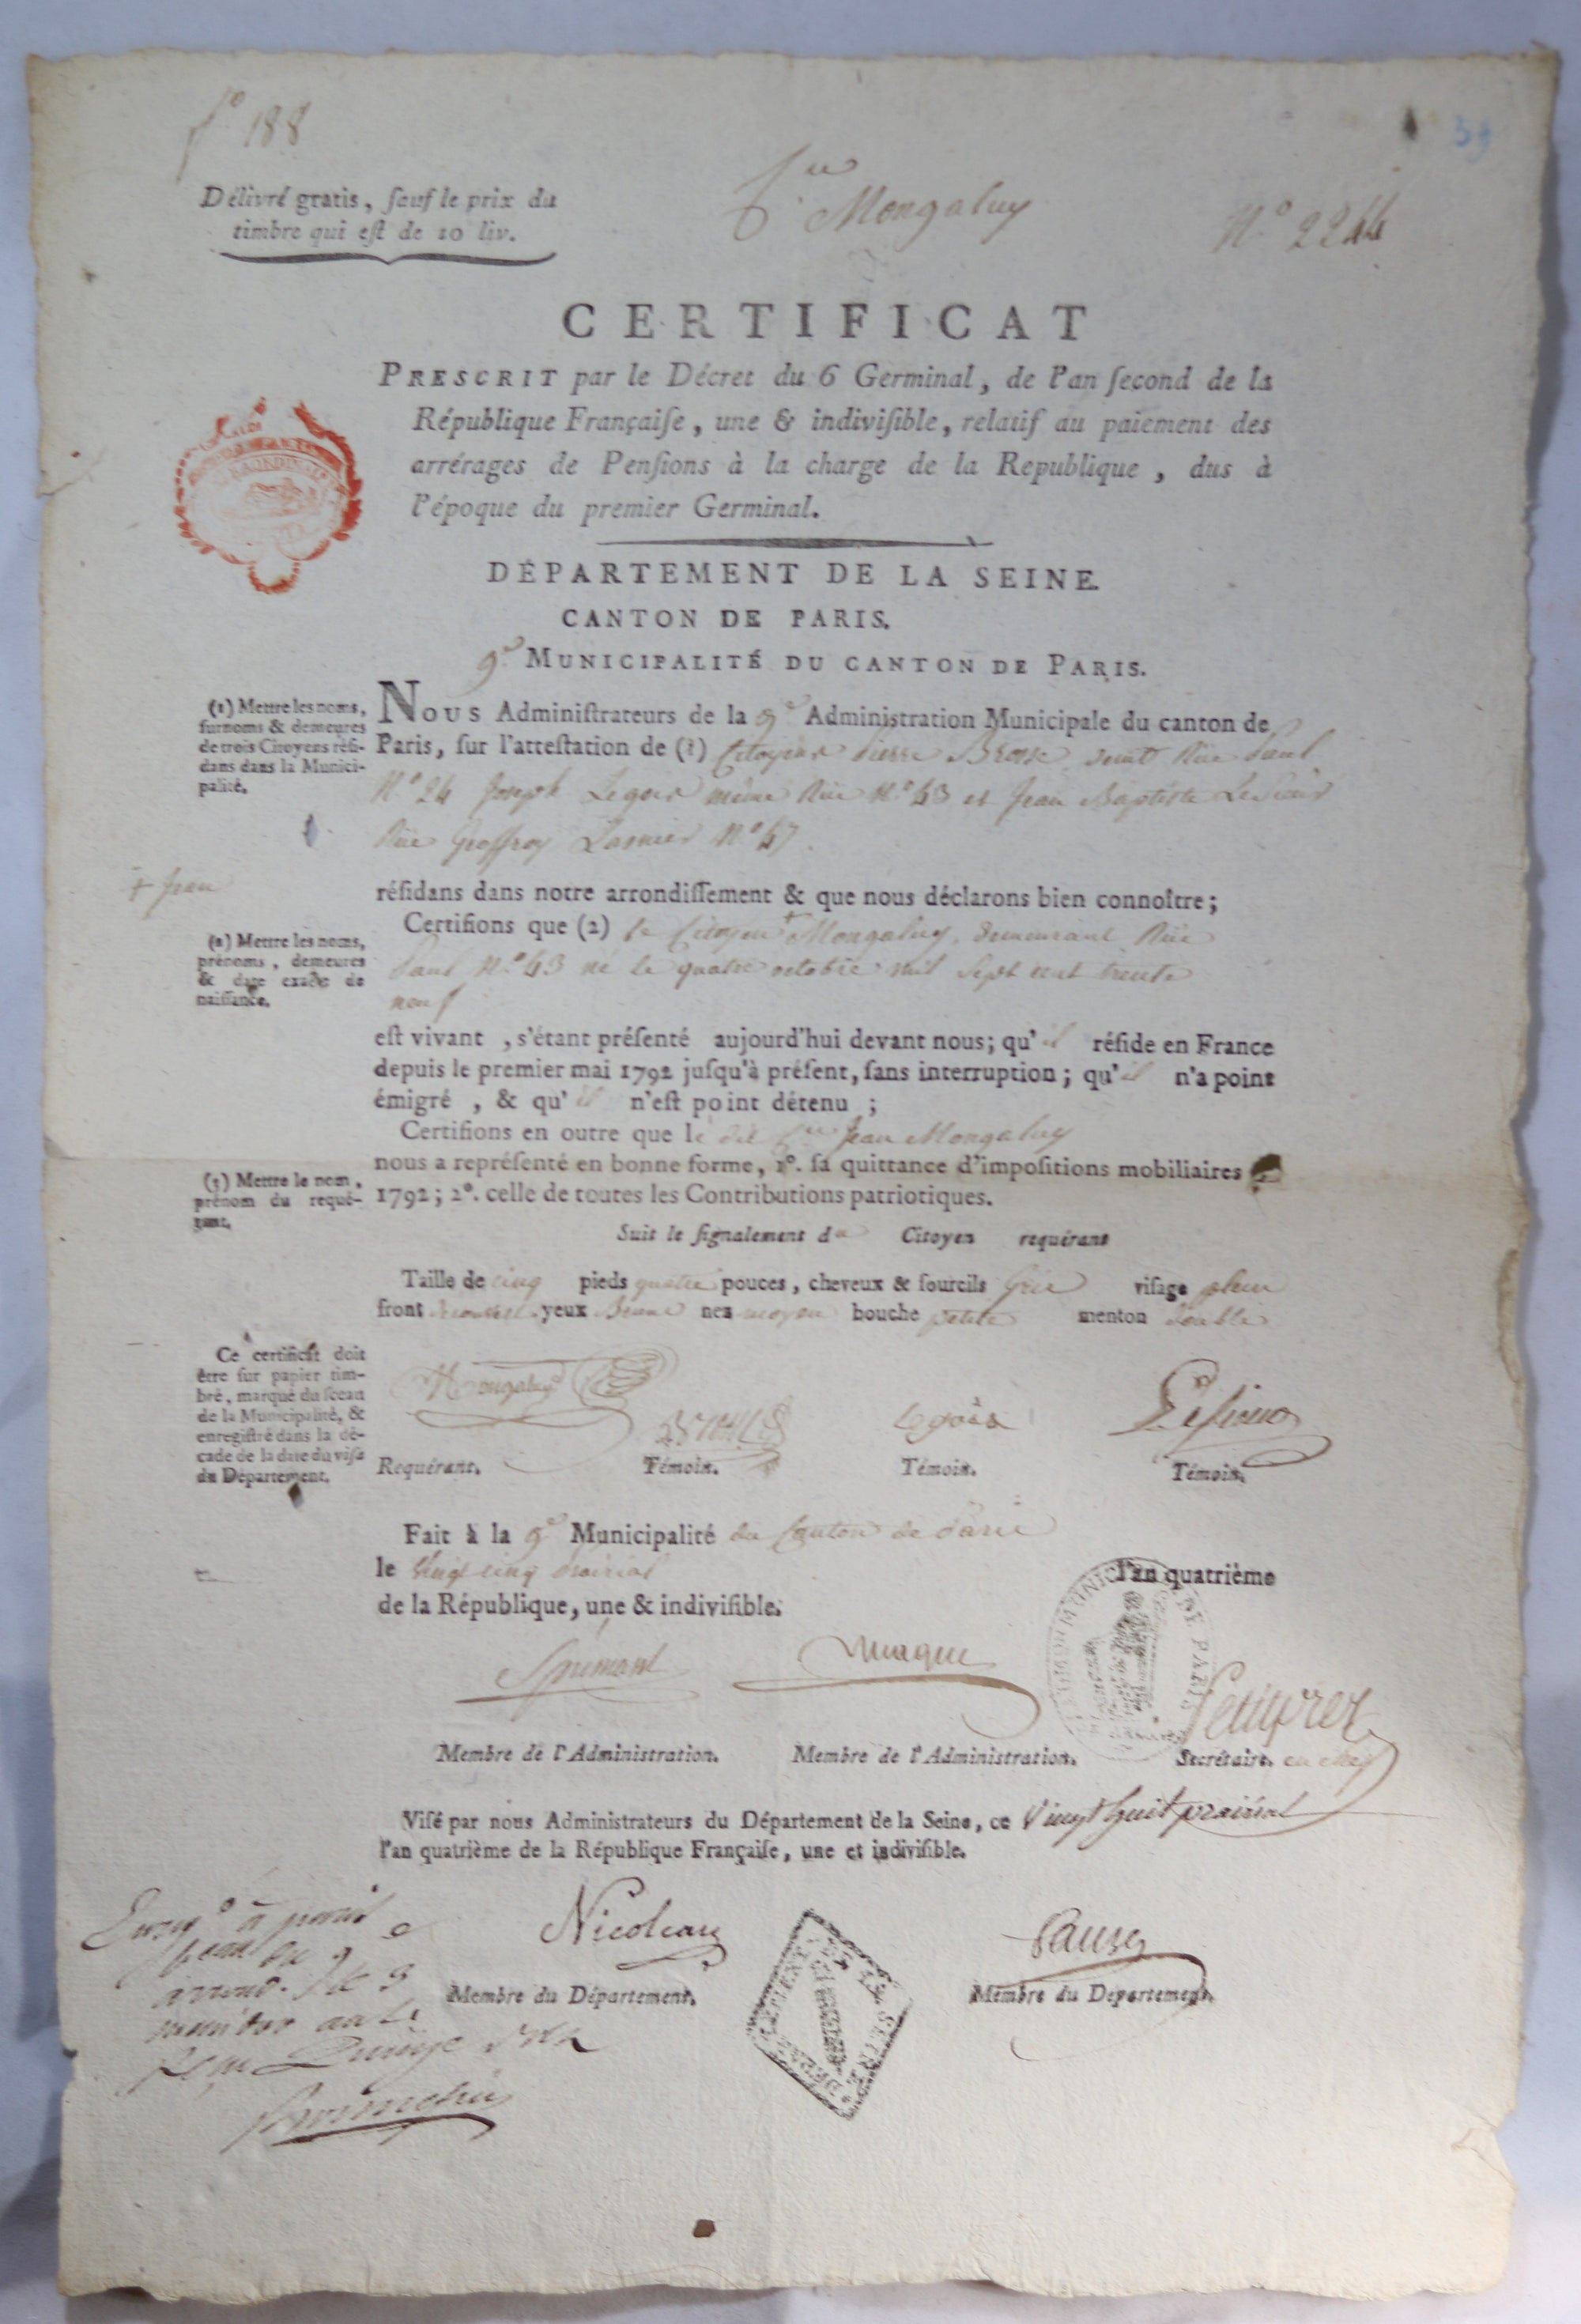 f° 188
39
Délivré gratis, ſauf le prix du
timbre qui eſt de 10 liv.
Cen Mongaluy
N° 2244
CERTIFICAT
PRESCRIT par le Décret du 6 Germinal, de l'an ſecond de la
République Françaiſe, une & indiviſible, relatif au paiement des
arrérages de Penſions à la charge de la Republique, dus à
l'époque du premier Germinal.
DÉPARTEMENT DE LA SEINE.
CANTON DE PARIS.
9e MUNICIPALITÉ DU CANTON DE PARIS.
(1) Mettre les noms,
ſurnoms & demeures
de trois Citoyens réſi-
dans dans la Munici-
palité.
NOUS Adminiſtrateurs de la 9e Adminiſtration Municipale du canton de
Paris, ſur l'atteſtation de (1) Citoyens Pierre Rüe Paul
N° 24 Joseph même Rüe N° 43 et Jean Baptiste
Rüe Geoffroy Lasnier N° 47.
+ Jean
réſidans dans notre arrondiſſement & que nous déclarons bien connoître;
(2) Mettre les noms,
prénoms, demeures
& date exacte de
naiſſance.
Certifions que (2) le Citoyen + Mongaluy, demeurant Rüe
Paul N° 43 né le quatre octobre mil sept cent trente
neuf
eſt vivant , s'étant préſenté aujourd'hui devant nous; qu'il réſide en France
depuis le premier mai 1792 juſqu'à préſent, ſans interruption; qu'il n'a point
émigré , & qu'il n'eſt point détenu ;
Certifions en outre que le dit Cen Jean Mongaluy
(3) Mettre le nom,
prénom du requé-
rant.
nous a repréſenté en bonne forme, 1°. ſa quittance d'impoſitions mobiliaires
1792; 2°. celle de toutes les Contributions patriotiques.
Suit le ſignalement du Citoyen requérant
Taille de cinq pieds quatre pouces, cheveux & ſourcils Gris viſage plein
front decouvert yeux Bruns nez moyen bouche petite menton double
Ce certificat doit
être ſur papier tim-
bré, marqué du ſceau
de la Municipalité, &
enregiſtré dans la dé-
cade de la date du viſa
du Département.
Mongaluy
Requérant. Témoin. Témoin. Témoin.
Fait à la 9e Municipalité du Canton de Paris
le Vingt cinq prairial l'an quatrième
de la République, une & indiviſible.
Membre de l'Adminiſtration. Membre de l'Adminiſtration. Secrétaire. en chef
Viſé par nous Adminiſtrateurs du Département de la Seine, ce Vingt huit prairial
l'an quatrième de la République Françaiſe, une et indiviſible.
Nicoleau
Membre du Département. Membre du Département.